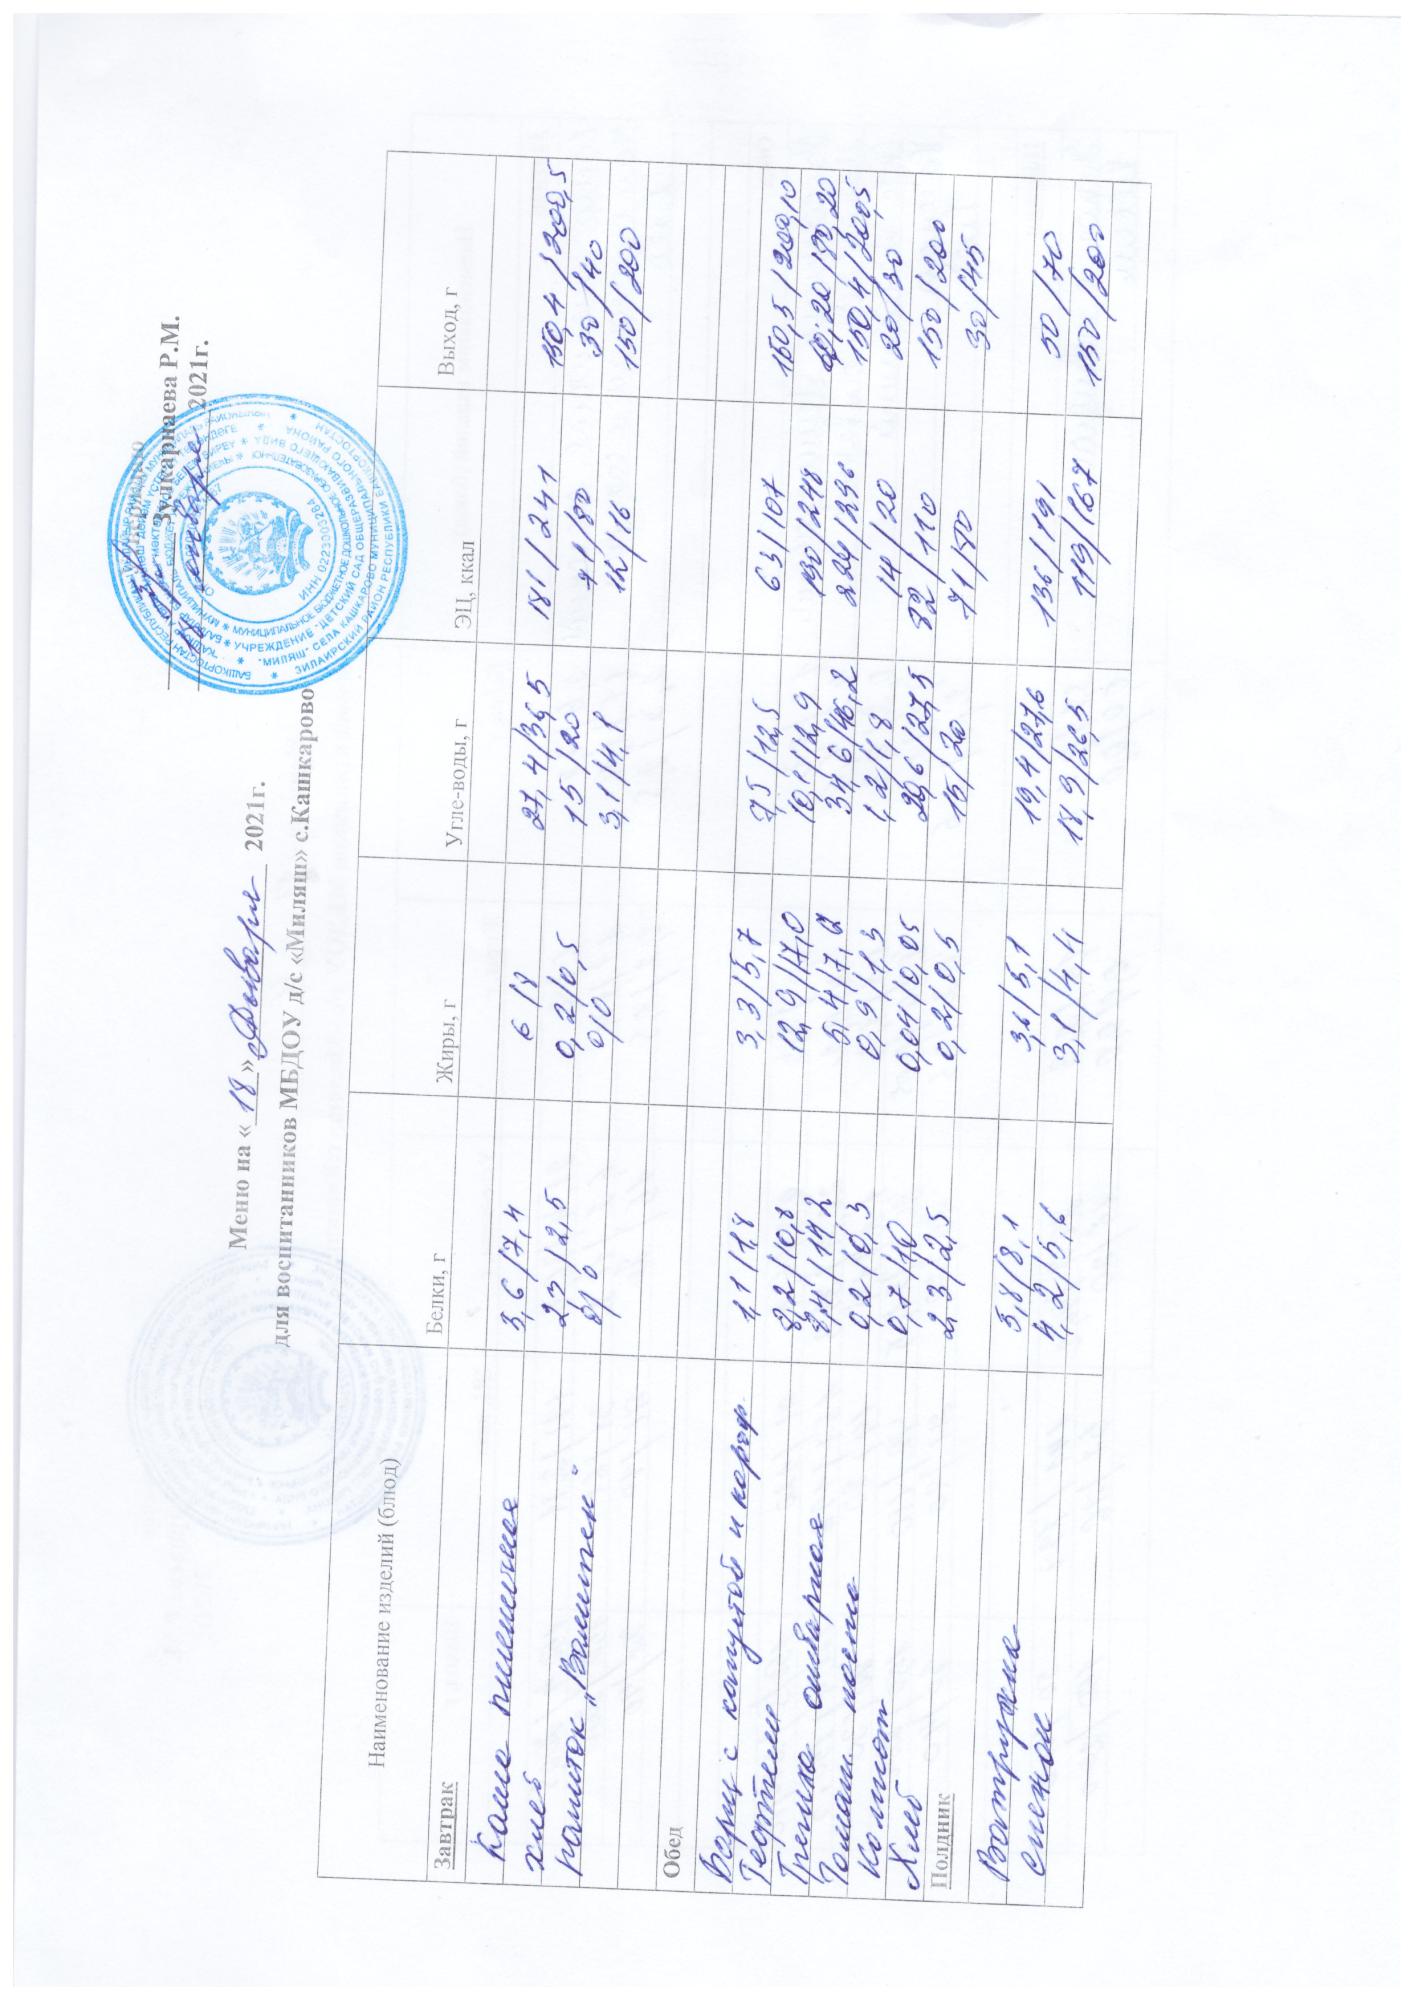 Зулкарнаева Р.М.
января 2021г.
Меню на « 18 » января 2021г.
для воспитанников МБДОУ д/с «Миляш» с.Кашкарово
Наименование изделий (блюд) Белки, г Жиры, г Угле-воды, г ЭЦ, ккал Выход, г
Завтрак
Каша пшеничная 3,6/7,4 6/8 27,4/36,5 181/241 150,4/200,5
хлеб 23/2,5 0,2/0,5 15/20 71/80 30/40
напиток „Витамин" 0/0 0/0 3,1/4,1 12/16 150/200
Обед
Борщ с капустой и картоф 1,1/1,8 3,3/5,7 7,5/12,5 63/107 150,5/200,10
Тефтели 8,2/10,8 12,9/17,0 10,1/12,9 190/248 60,20/80,20
Гречка отварная 8,4/142 5,4/7,2 34,6/46,2 224/296 150,4/200,5
Томат паста 0,2/0,3 0,9/1,3 1,2/1,8 14/20 20/30
Компот 0,7/10 0,04/0,05 20,6/27,5 82/110 150/200
Хлеб 2,3/2,5 0,2/0,5 15/20 71/80 30/45
Полдник
Ватрушка 5,8/8,1 3,6/5,1 19,4/27,6 136/191 50/70
Снежок 4,2/5,6 3,1/4,4 18,9/26,5 119/167 150/200
ИНН 0223003264